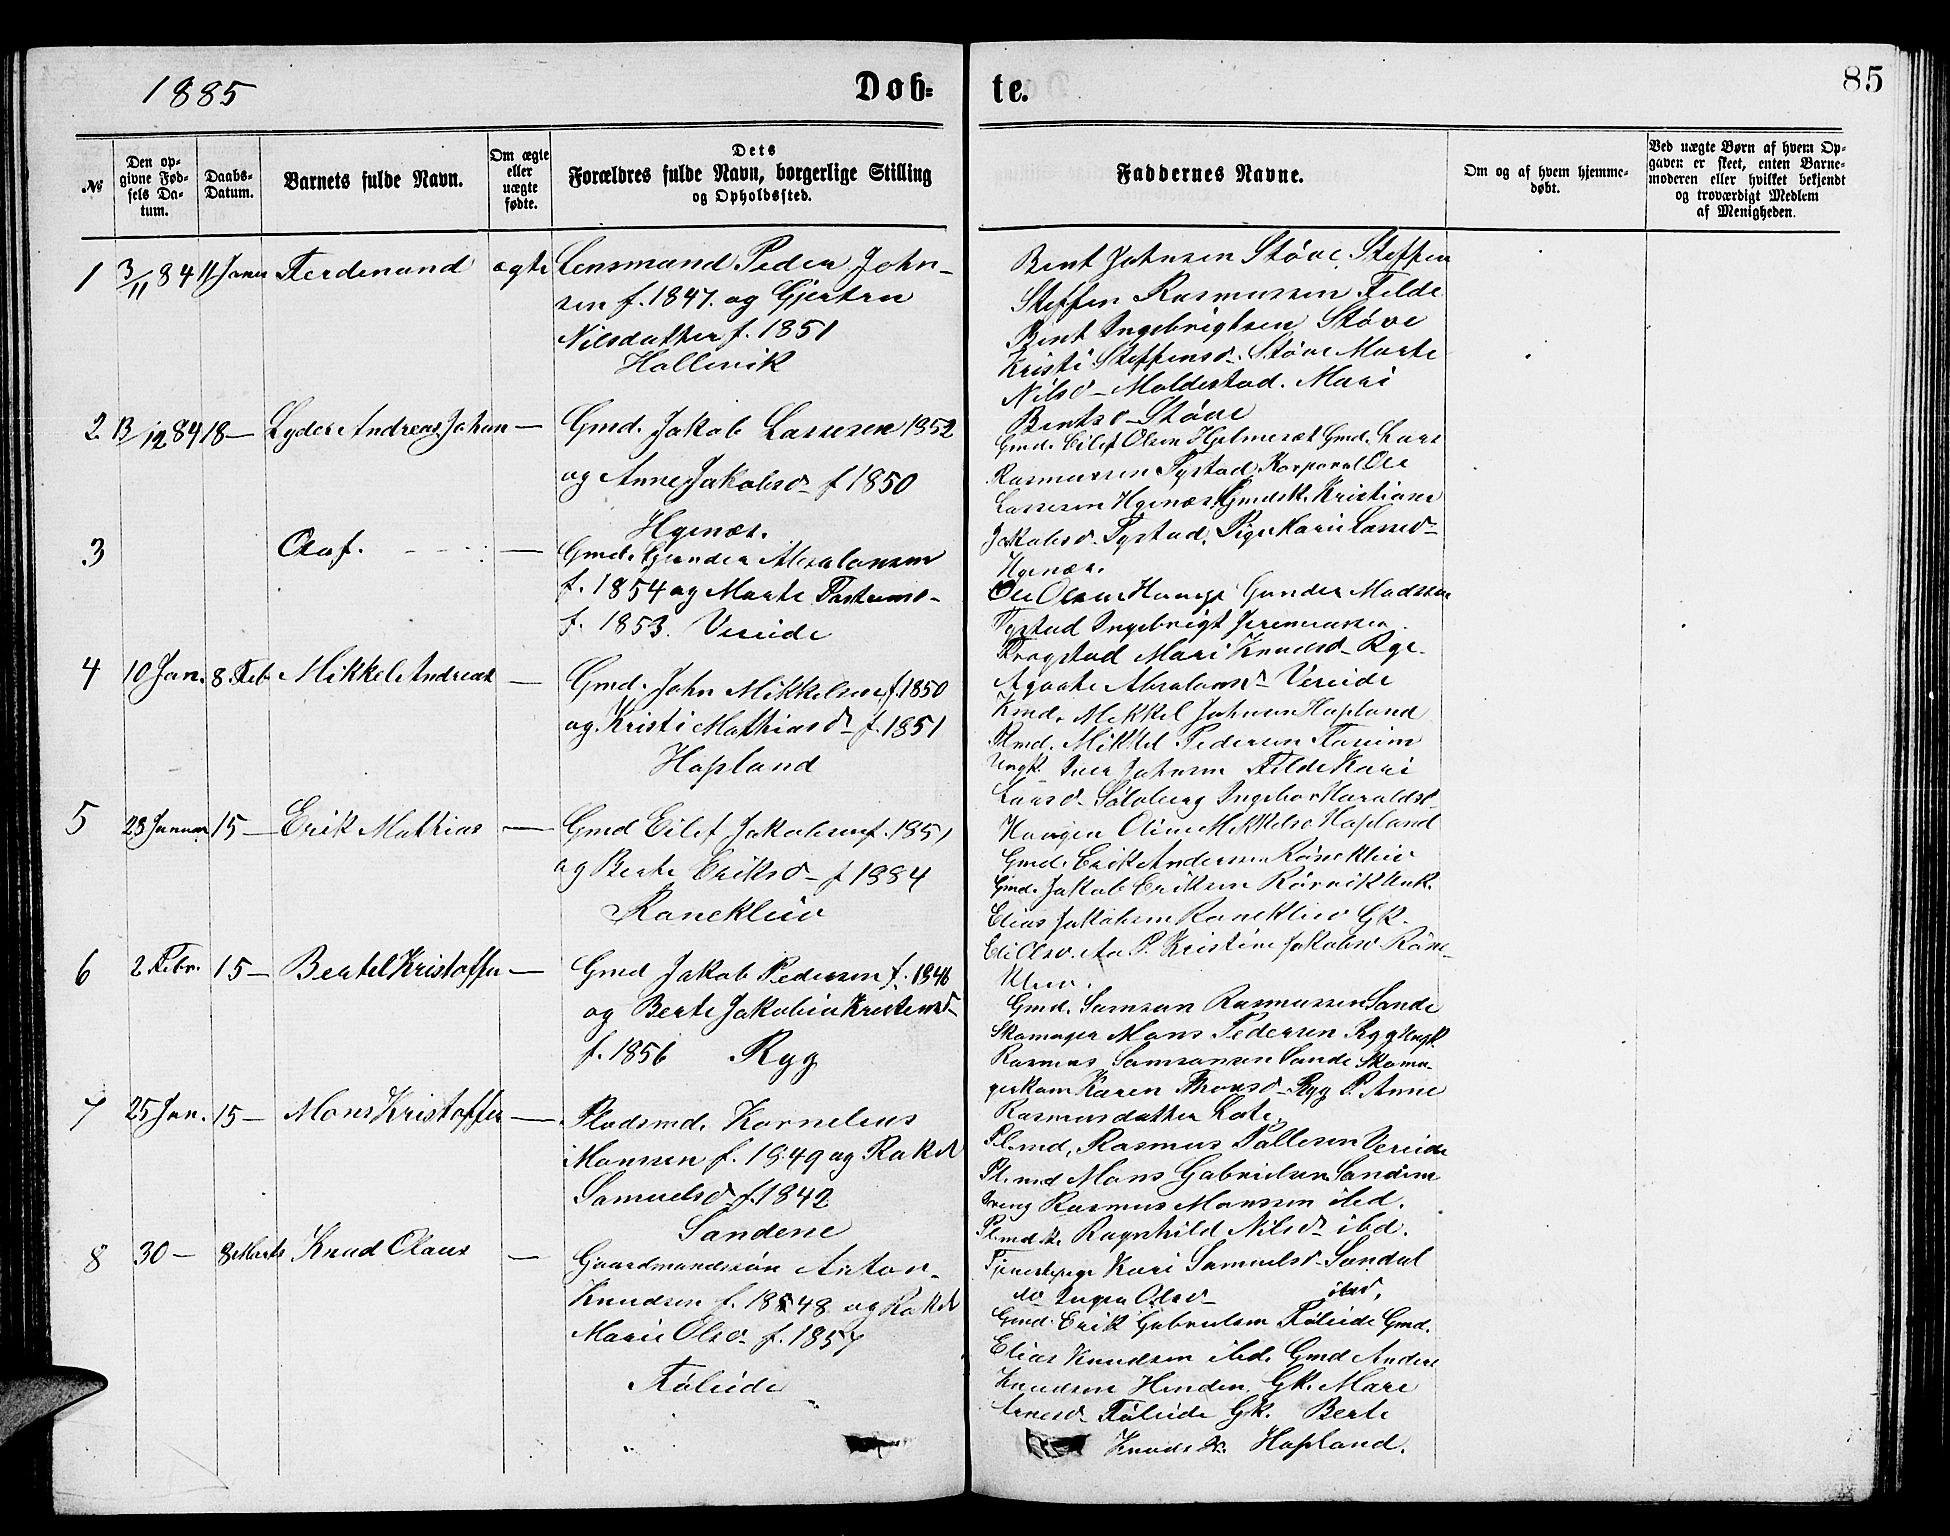 1885
Døb-
te.
85
№
Den op-
givne Fød-
sels Da-
tum.
Daabs-
Datum.
Barnets fulde Navn.
Om ægte
eller
uægte
fødte.
Dets
Forældres fulde Navn, borgerlige Stilling
og Opholdssted.
Faddernes Navne.
Om og af hvem hjemme-
døbt.
Ved uægte Børn af hvem Op-
gaven er skeet, enten Barne-
moderen eller hvilket bekjendt
og troværdigt Medlem
af Menigheden.
1 3/11 84 11 Januar Ferdenand ægte Lensmand Peder John-
sen f. 1847. og Gjertru
Nilsdatter f. 1851
Hollevik
Bent Johnsen Støve Steffen
Steffen Rasmussen Felde
Bent Ingebrigtsen Støve
Kristi Steffensd. Støve Marte
Nilsd- Moldestad. Mari
Bentsd- Støve
2 13/12 84 18 — Lyder Andreas Johan — Gmd. Jakob Lassesen 1852
og Anne Jakobsd- f 1850
Hjenæs.
Gmd. Eilef Olsen Hjelmeset Gmd. Lars
Rasmussen Tystad, Korporal Ole
Lassesen Hjenæs, Gmdsk. Kristiane
Jakobsd. Tystad, Pige Marie Lassed-
Hjenæs.
3 Olaf. — Gmd. Gunder Absalonsen
f. 1854 og Marte
f. 1853. Vereide
Ole Olsen Hauge Gunder Madsen
Tystad Ingebrigt
Frogstad Mari Knudsd- Ryg.
Agaate Absalonsd- Vereide
4 10 Jan. 8. Feb Mikkel Andreas — Gmd. John Mikkelsen f. 1850
og Kristi Mathiasd- f. 1851
Hopland
Kmd. Mikkel Johnsen Hopland
Mikkel Pedersen
Ungk. Iver Johnsen Felde Kari
Larsd- Solberg Ingebor Haraldsd-
Haugen Oline Mikkelsd Hopland
5 23 Januar 15 — Erik Mathias — Gmd Eilef Jakobsen f. 1851
og Berte Eriksd- f 1884
Raneklew
Gmd. Erik Andersen
Gmd. Jakob Eriksen Rørvik Unk.
Elias Jakobsen Raneklew Gk-
Kristine Jakobsd Røne-
klew.
6 2 Febr. 15 — Bertel Kristoffer — Gmd Jakob Pedersen f. 1846
og Berte Jakobia Kristensd-
f. 1856 Ryg
Gmd. Samson Rasmussen Sande
Skomager Mons Pedersen Ryg Ungk.
Rasmus Samsonsen Sande Skoma-
gerkom Karen Thomsd- Ryg P. Anne
Rasmusdatter Lote.
7 25 Jan. 15 — Mons Kristoffer — Pladsmd. Kornelius
Monssen f. 1849 og Rakel
Samuelsd f. 1842
Sandene
Pl.md. Rasmus Pallesen Vereide
Pl.md Mons Gabrielsen Sandene
Dreng Rasmus Monssen ibd.
Plmd k. Ragnhild Nilsd- ibd.
Tjenestpige Kari Samuelsd- Sandal
do Inger Olsd- ibd.
8 30 — 8 Marts Knud Olaus — Gaardmandssøn Anton
Knudsen f. 1848 og Rakel
Marie Olsd- f. 1857
Føleide
Gmd. Erik Gabrielsen Føleide Gmd.
Elias Knudsen ibd. Gmd Anders
Knudsen Hinden, Gk. Mari
Arnesd- Føleide Gk. Berte
Knudsd. Hopland.